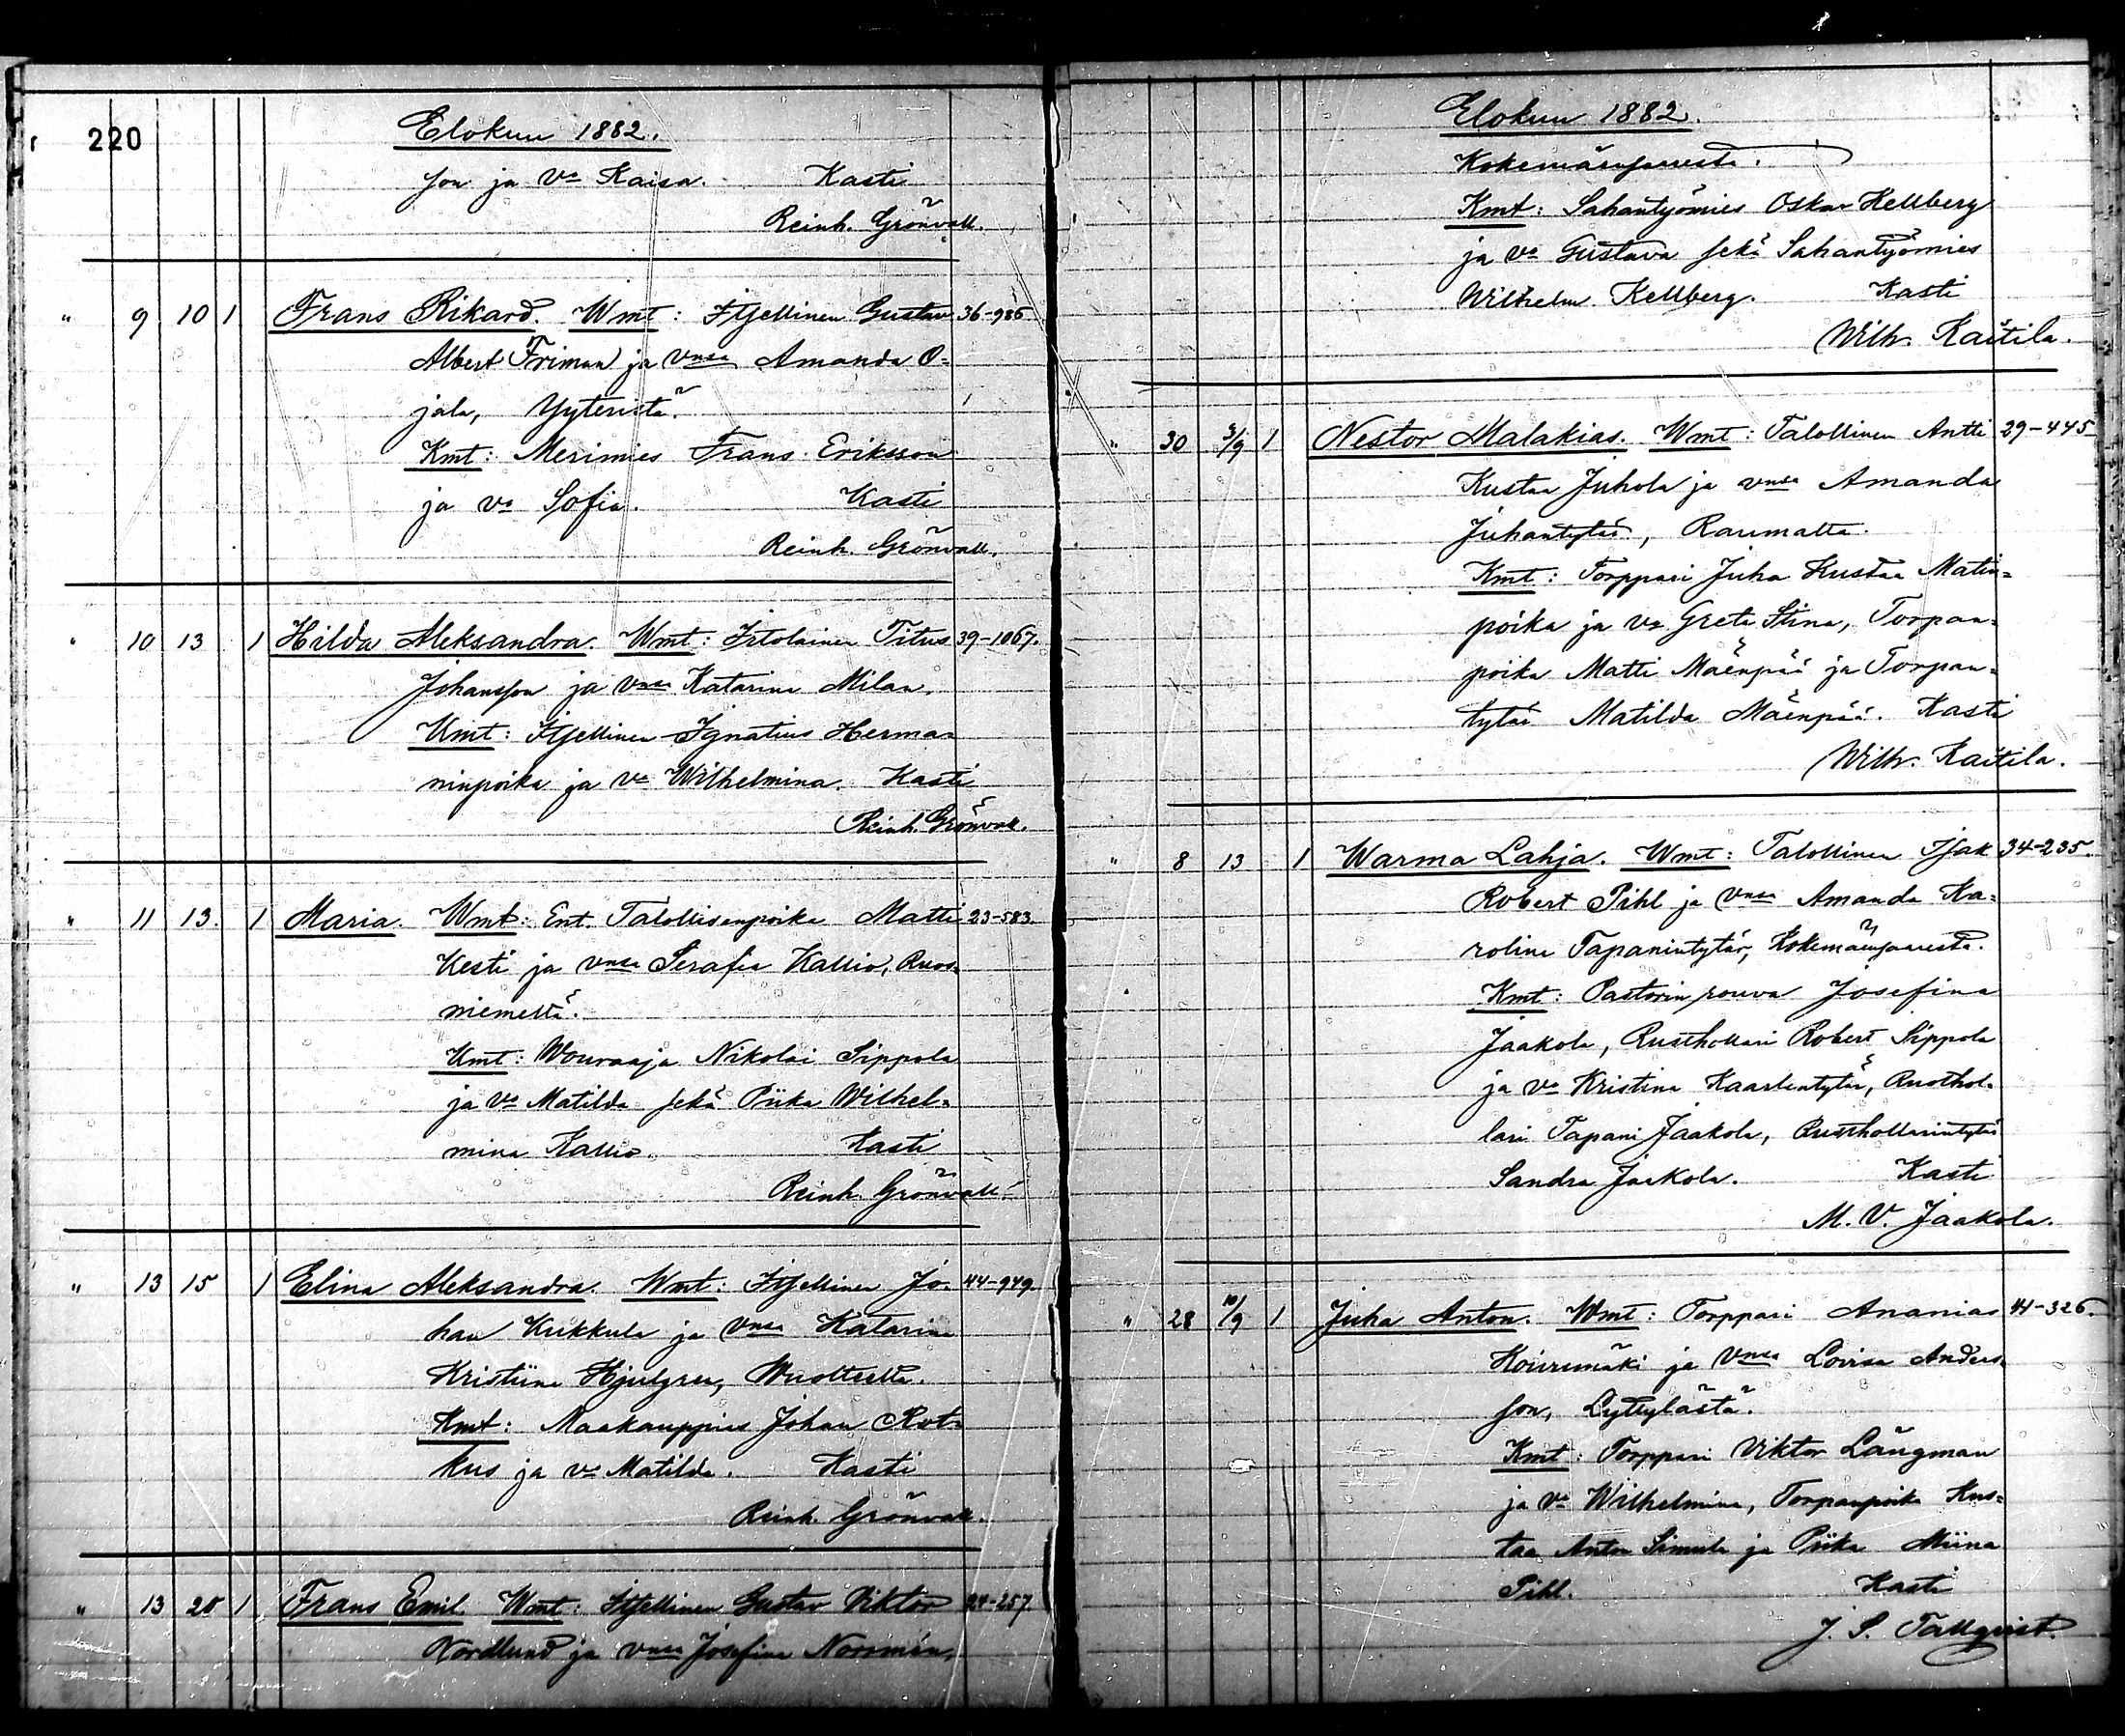 220
Elokuu 1882.
son ja va Kaisa. Kasti
Reinh. Grönvall.
" 9 10 1 Frans Rikard. Wmt: Itsellinen Gustav 36-986
Albert Friman ja vnsa Amanda O-
jala, Yyteristä.
Kmt: Merimies Frans Eriksson
ja va Sofia. Kasti
Reinh. Grönvall.
" 10 13 1 Hilda Aleksandra. Wmt: Irtolainen Titus 39-1067.
Johansson ja vnsa Katarina Milan.
Kmt: Itsellinen Ignatius Herma-
ninpoika ja va Wilhelmina. Kasti
Reinh. Grönvall.
" 11 13. 1 Maria. Wmt: Ent. Talollisenpoika Matti 23-583.
Kesti ja vnsa Serafia Kallio, Ruos-
niemeltä.
Kmt: Wouraaja Nikolai Sippola
ja va Matilda sekä Piika Wilhel-
mina Kallio. Kasti
Reinh. Grönvall.
" 13 15 1 Elina Aleksandra. Wmt: Itsellinen Jo- 44-949.
han Kukkula ja vnsa Katarina
Kristiina Hjulgren,
Kmt: Maakauppias Johan Rot-
kus ja va Matilda. Kasti
Reinh. Grönvall.
" 13 20 1 Frans Emil. Wmt: Itsellinen Gustav Viktor 24-257.
Nordlund ja vnsa Josefina Norrmén,
Elokuu 1882.
Kokemäensaaresta.
Kmt: Sahantyömies Oskar Hellberg
ja va Gustava sekä Sahantyömies
Wilhelm Kellberg. Kasti
Wilh. Kaitila.
" 30 3/9 1 Nestor Malakias. Wmt: Talollinen Antti 29-445
Kustaa Juhola ja vnsa Amanda
Juhantytär, Raumalta.
Kmt: Torppari Juha Kustaa Matin-
poika ja va Greta Stina, Torpan-
poika Matti Mäenpää ja Torpan-
tytär Matilda Mäenpää. Kasti
Wilh. Kaitila.
" 8 13 1 Warma Lahja. Wmt: Talollinen Isak 34-235.
Robert Pihl ja vnsa Amanda Ka-
rolina Tapanintytär, Kokemäensaaresta.
Kmt: Pastorin rouva Josefina
Jaakola, Rusthollari Robert Sippola
ja va Kristina Kaarlentytär, Rusthol-
lari Tapani Jaakola, Rusthollarintytär
Sandra Jaakola. Kasti
M. V. Jaakola.
" 28 10/9 1 Juha Anton. Wmt: Torppari Ananias 44-326.
Koivumäki ja vnsa Lovisa Anders-
son, Lyttylästä.
Kmt: Torppari Viktor Långman
ja va Wilhelmina, Torpanpoika Kus-
taa Anton Simula ja Piika Miina
Pihl. Kasti
J. S. Tallqvist.